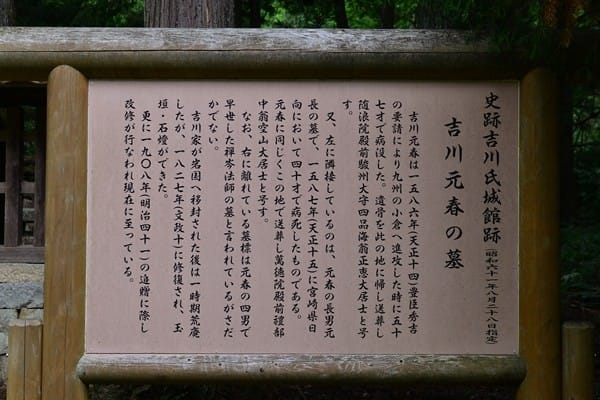 史跡吉川氏城館跡(昭和六十一年八月二十八日指定)
吉川元春の墓
吉川元春は一五八六年(天正十四)豊臣秀吉
の要請により九州の小倉へ進攻した時に五十
七才で病没した。遺骨を此の地に帰し送葬し
随浪院殿前駿州太守四品海翁正恵大居士と号
す。
又、左に隣接しているのは、元春の長男元
長の墓で、一五八七年(天正十五)に宮崎県日
向において四十才で病死したものである。
元春に同じくこの地で送葬し萬徳院殿前禮部
中翁空山大居士と号す。
なお、右に離れている墓標は元春の四男で
早世した禅岑法師の墓と言われているがさだ
かでない。
吉川家が岩国へ移封された後は一時期荒廃
したが、一八二七年(文政十)に修復され、玉
垣・石燈ができた。
更に一九〇八年(明治四十一)の追贈に際し
改修が行なわれ現在に至っている。